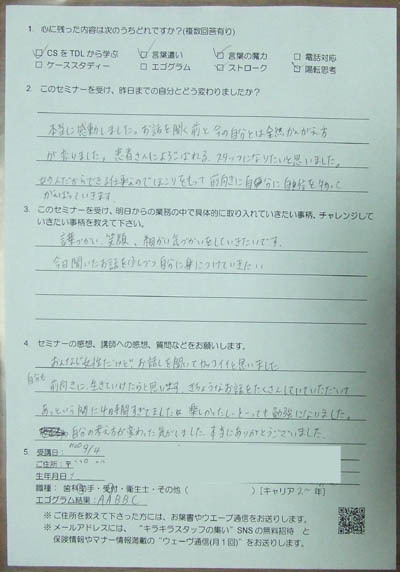 1. 心に残った内容は次のうちどれですか?(複数回答有り)
☑ CSをTDLから学ぶ ☑ 言葉遣い ☑ 言葉の魔力 □ 電話対応
□ ケーススタディー □ エゴグラム ☑ ストローク ☑ 陽転思考
2. このセミナーを受け、昨日までの自分とどう変わりましたか?
本当に感動しました。お話を聞く前と今の自分とは全然かんがえ方
が変りました。患者さんによろこばれる、スタッフになりたいと思いました。
だからできる仕事なのでほこりをもって前向きに自分に自信を
がんばっていきます。
3. このセミナーを受け、明日からの業務の中で具体的に取り入れていきたい事柄、チャレンジして
いきたい事柄を教えて下さい。
言葉づかい、笑顔、細かい気づかいをしていきたいです。
今日聞いたお話を少しづつ自分に身につけていきたい
4. セミナーの感想、講師への感想、質問などをお願いします。
女性だけどお話しを聞いてカッコイイと思いました
自分も前向きに、生きていけたらと思います。きちょうなお話をたくさんしていただいて
あっという間に4時間すぎてました。楽しかったし、とっても勉強になりました。
自分の考え方が変わった気がしました。本当にありがとうございました。
5. 受講日: 9/4
ご住所:〒
生年月日:
職種: 歯科助手・受付・衛生士・その他( )[キャリア 2 年]
エゴグラム結果: AABBC
※ご住所を教えて下さった方には、お葉書やウエーブ通信をお送りします。
※メールアドレスには、"キラキラスタッフの集い"SNSの無料招待と
保険情報やマナー情報満載の"ウェーヴ通信(月1回)"をお送りします。